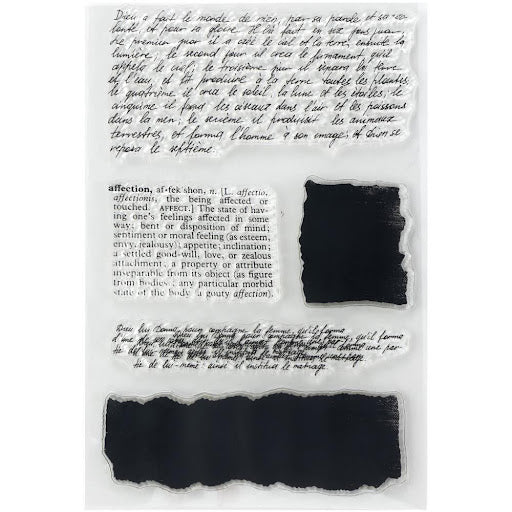 Dieu a fait le monde de rien, par sa parole et sa vo-
lonté, et pour sa gloire. Il l'a fait en six jours
le premier jour il a créé le ciel et la terre, ensuite la
lumière; le second jour il créa le firmament, qu'il
appela le ciel; le troisième jour il sépara la terre
et l'eau, et fit produire à la terre toutes les plantes;
le quatrième il créa le soleil, la lune et les étoiles; le
cinquième il fit les oiseaux dans l'air et les poissons
dans la mer; le sixième il produisit les animaux
terrestres, et forma l'homme à son image; et Dieu se
reposa le septième.
affection, af-fek´shon, n. [L. affectio,
affectionis, the being affected or
touched. AFFECT.] The state of hav-
ing one's feelings affected in some
way; bent or disposition of mind;
sentiment or moral feeling (as esteem,
envy, jealousy); appetite; inclination;
a settled good-will, love, or zealous
attachment; a property or attribute
inseparable from its object (as figure
from bodies); any particular morbid
state of the body (a gouty affection).
Dieu lui donna pour compagne la femme, qu'il forma
d'une
tie de lui-même: ainsi il institua le mariage